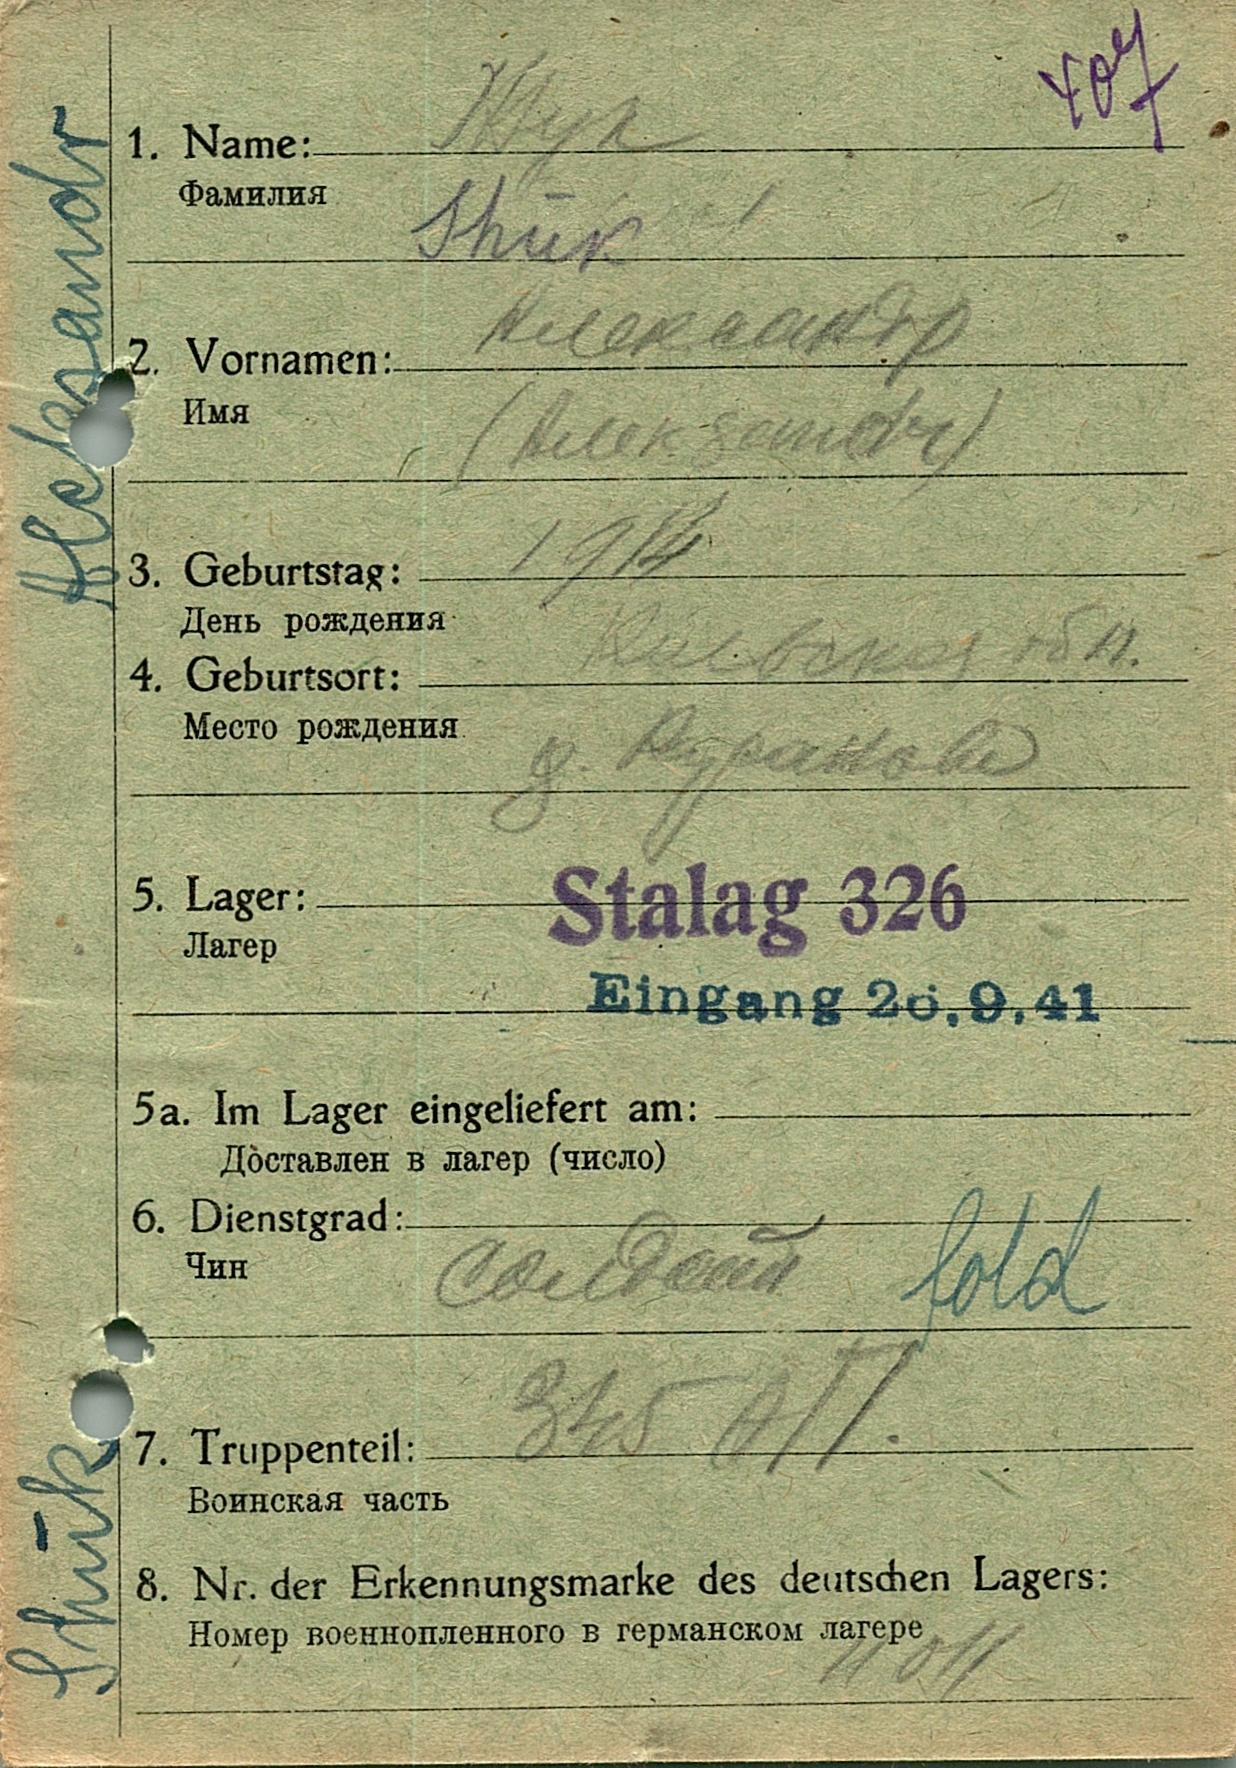 407
1. Name: Жук
Фамилия
Shuk
2. Vornamen: Александр
Имя
(Александr)
3. Geburtstag: 1914
День рождения
Киевская обл.
4. Geburtsort:
Место рождения
д.
5. Lager: Stalag 326
Лагер
Eingang 26.9.41
5a. Im Lager eingeliefert am:
Доставлен в лагер (число)
6. Dienstgrad:
Чин
солдат Sold
345 АП.
7. Truppenteil:
Воинская часть
8. Nr. der Erkennungsmarke des deutschen Lagers:
Номер военнопленного в германском лагере
Shuk Aleksandr